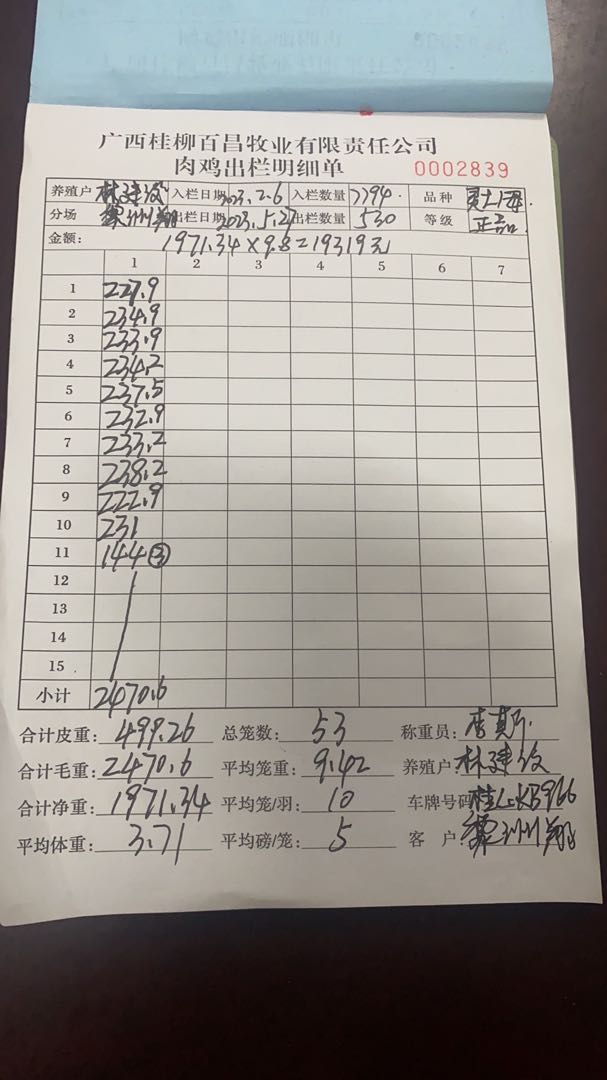 广西桂柳百昌牧业有限责任公司
肉鸡出栏明细单 0002839
养殖户 林建 入栏日期 2023.2.6 入栏数量 7794 品种
分场 出栏日期 2023.5.27 出栏数量 530 等级 正品
金额: 1971.34×9.8=19319元
1 2 3 4 5 6 7
1 227.9
2 234.9
3 233.9
4 234.2
5 237.5
6 232.9
7 233.2
8 238.2
9 222.9
10 231
11 144③
12
13
14
15
小计 2470.6
合计皮重: 499.26 总笼数: 53 称重员: 李
合计毛重: 2470.6 平均笼重: 9.42 养殖户: 林建
合计净重: 1971.34 平均笼/羽: 10 车牌号码: 桂 KB966
平均体重: 3.71 平均磅/笼: 5 客户: